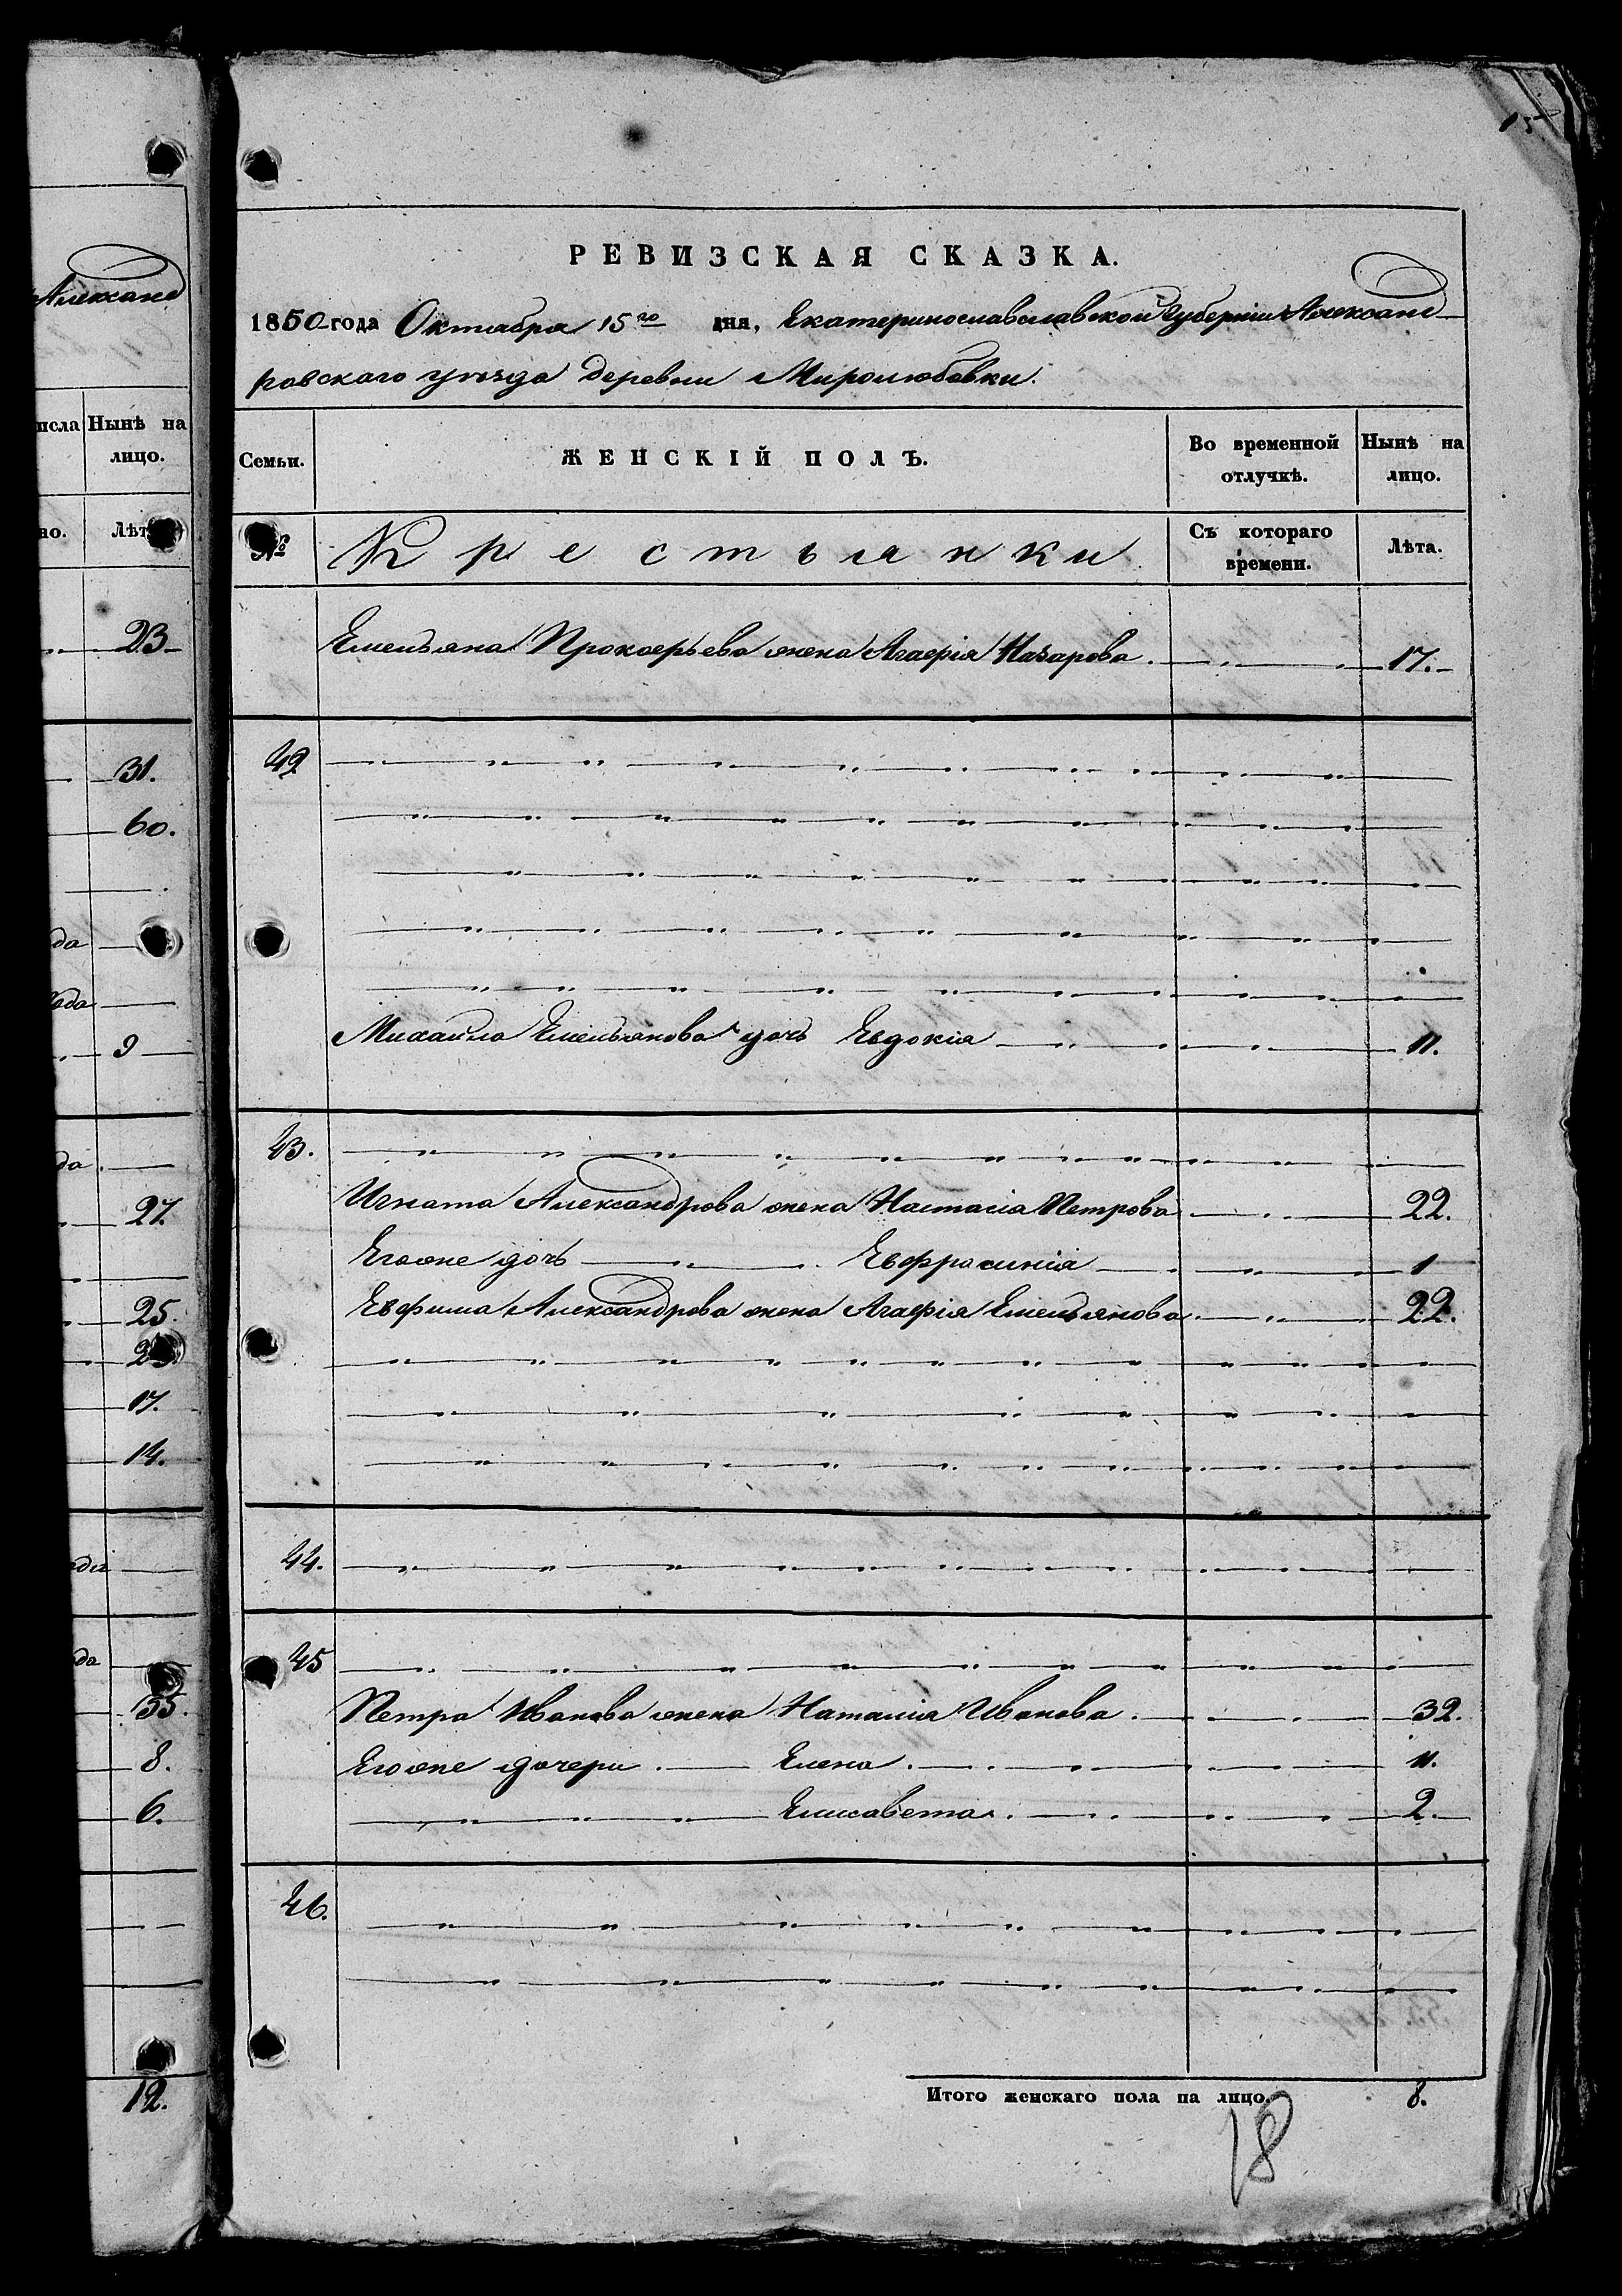 15
РЕВИЗСКАЯ СКАЗКА.
1850 года Октября 15го дня, Екатеринославславской Губерніи Александ-
ровскаго уѣзда деревни Миролюбовки.
Семьи. ЖЕНСКІЙ ПОЛЪ. Во временной отлучкѣ. Нынѣ на лицо.
№ Крестьянки Съ котораго времени. Лѣта.
Емельяна Прокофьева жена Агафія Назарова. 17.
42
Михайла Емельянова дочь Евдокія 11.
43.
Игната Александрова жена Настасія Петрова 22.
Егоже дочь Евфросинія 1
Евфима Александрова жена Агафія Емельянова 22.
44.
45
Петра Иванова жена Наталія Иванова. 32.
Егоже дочери. Елена. 11.
Елисавета. 2.
46.
Итого женскаго пола на лицо. 8.
18
Александ
исла Нынѣ на
лицо.
но. Лѣт
23
31.
60.
да
года
9
да
27.
25.
17.
14.
да
35.
8.
6.
12.